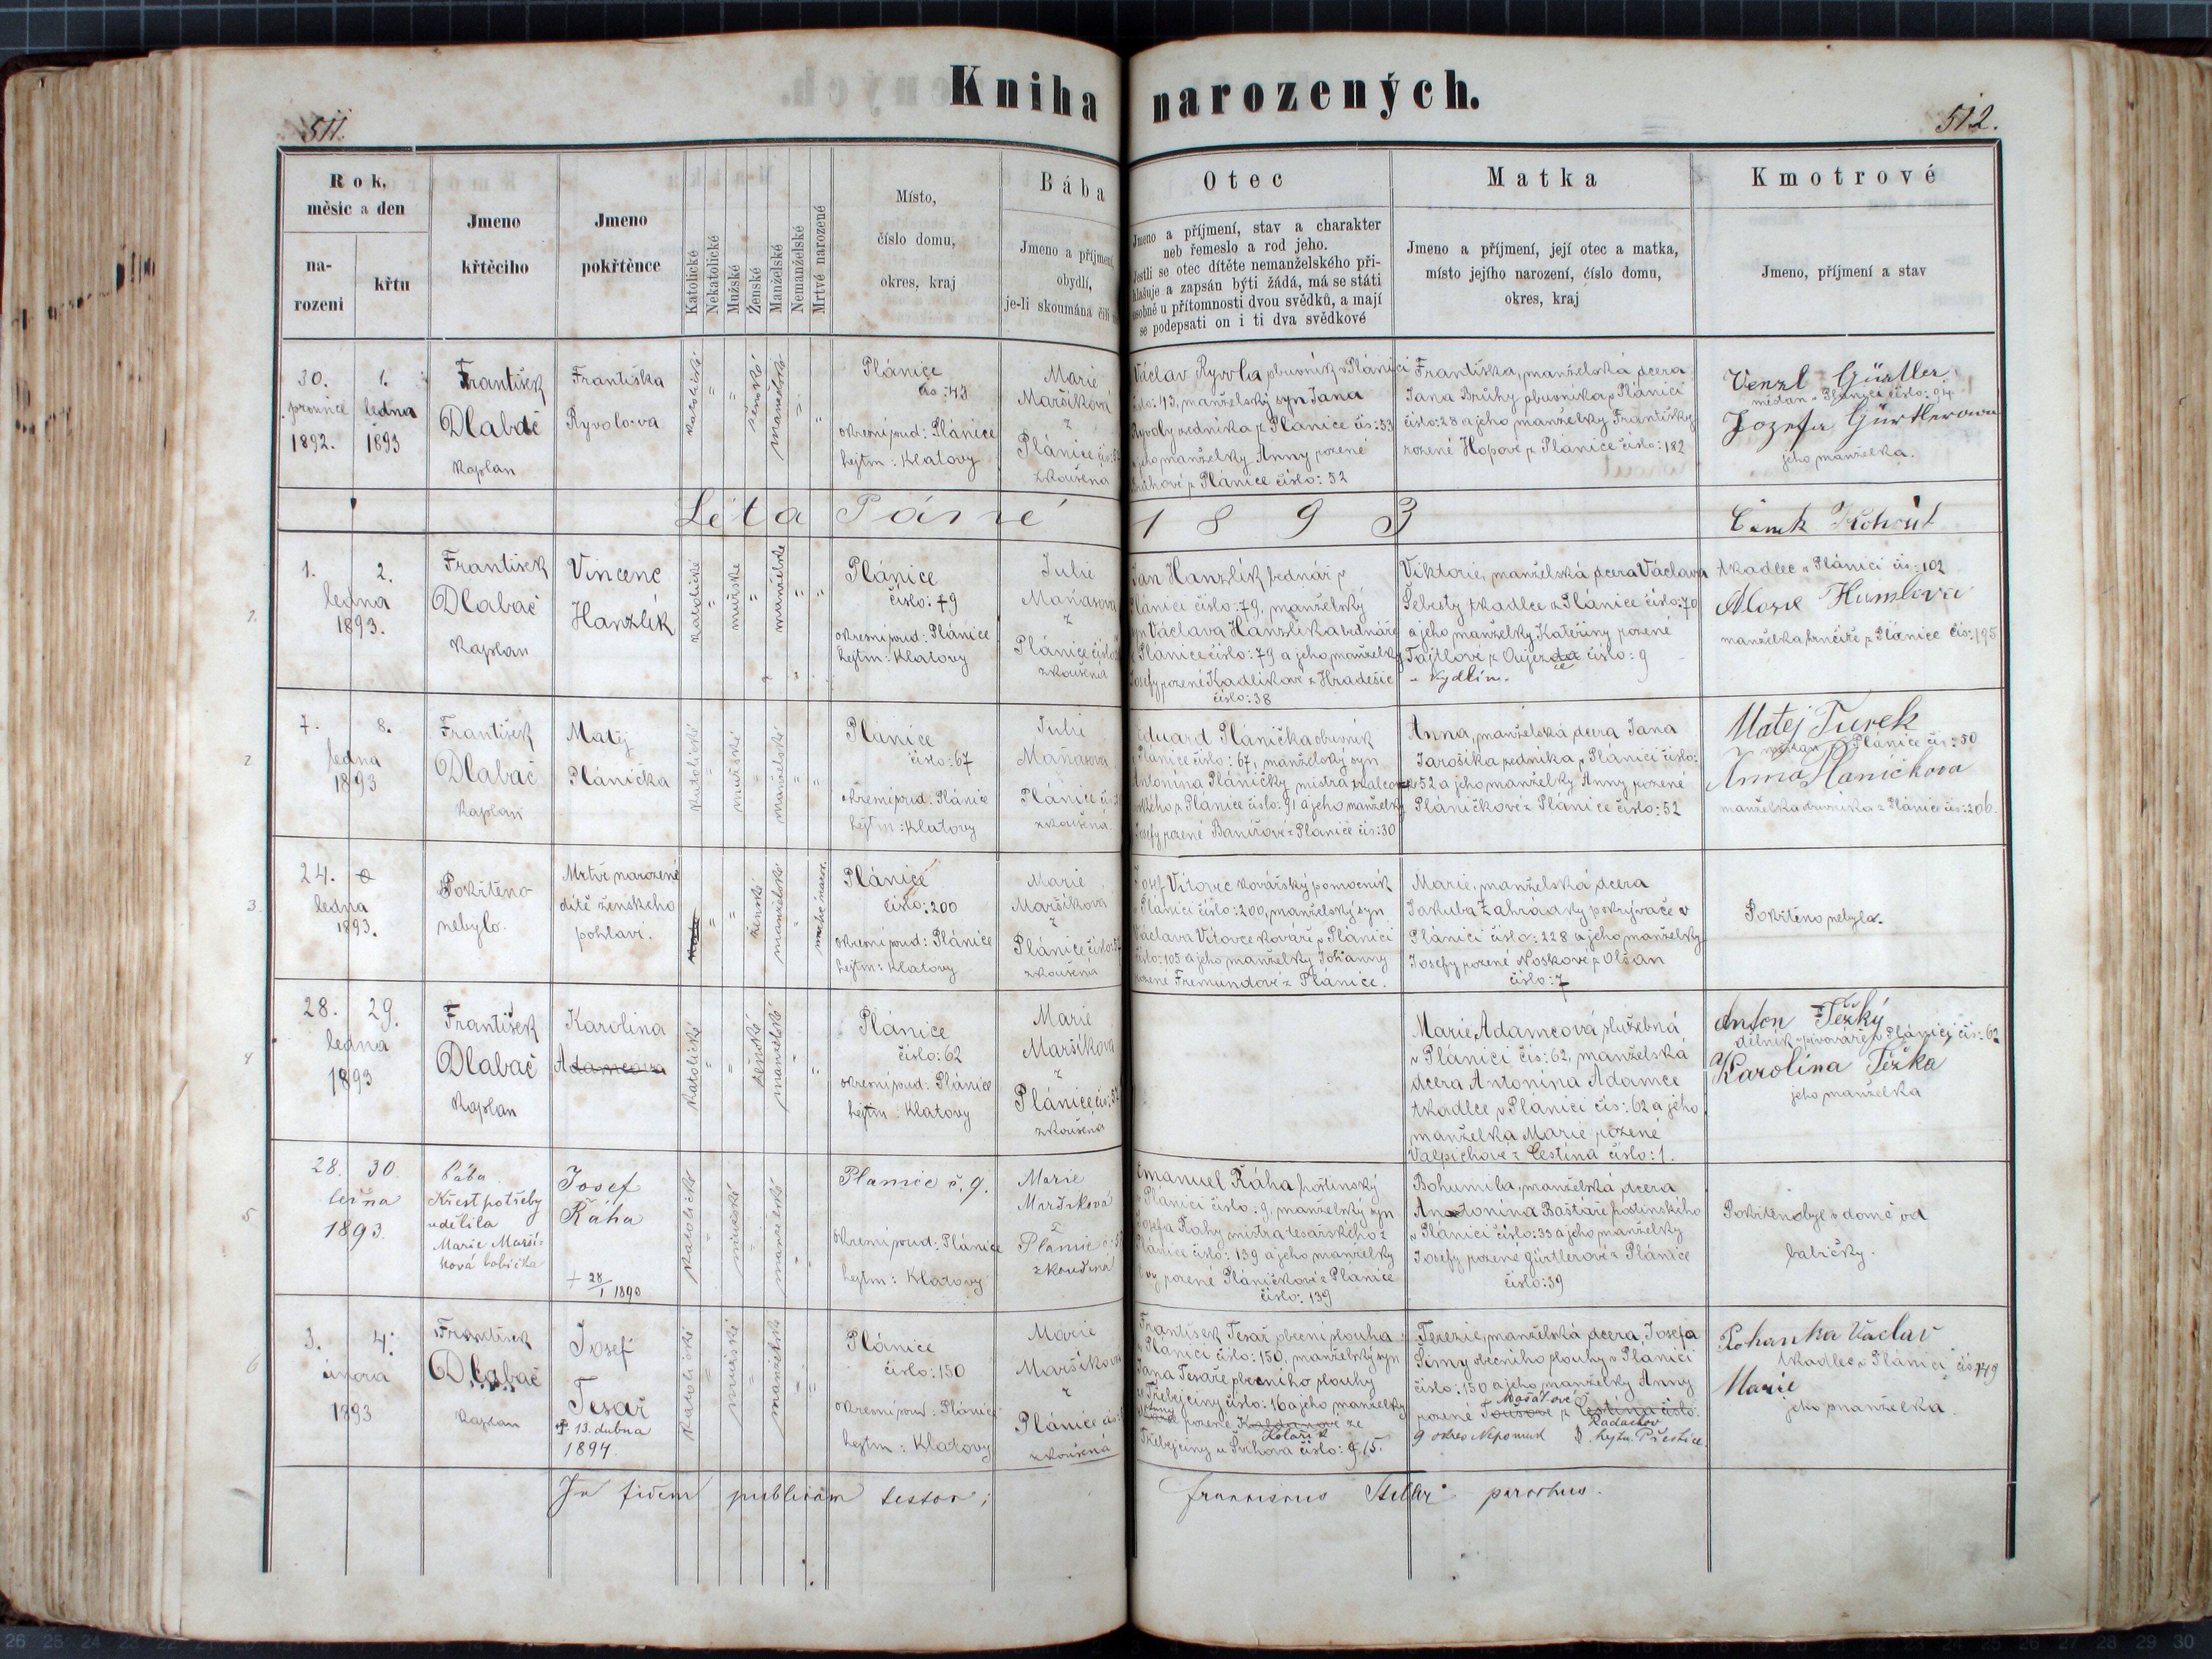 Kniha narozených.
511.
512.
Rok, měsíc a den
na-
rození
křtu
Jmeno
křtěcího
Jmeno
pokřtěnce
Katolické
Nekatolické
Mužské
Ženské
Manželské
Nemanželské
Mrtvé narozené
Místo,
číslo domu,
okres, kraj
Bába
Jmeno a příjmení,
obydlí,
je-li skoumána čili
Otec
Jmeno a příjmení, stav a charakter
neb řemeslo a rod jeho.
Jestli se otec dítěte nemanželského při-
hlašuje a zapsán býti žádá, má se státi
osobně u přítomnosti dvou svědků, a mají
se podepsati on i ti dva svědkové
Matka
Jmeno a příjmení, její otec a matka,
místo jejího narození, číslo domu,
okres, kraj
Kmotrové
Jmeno, příjmení a stav
30. 1.
prosince ledna
1892. 1893
František
Dlabač
Kaplan
Františka
Ryvolova
katolické
ženské
manželské
Plánice
čís: 43
okresní soud: Plánice
hejtm: Klatovy
Marie
Maršíková
z
Plánice
zkoušená
Václav Ryvola obuvník v Plánici
číslo: 43, manželský syn Jana
Ryvoly zedníka z Plánice čís: 53
a jeho manželky Anny rozené
z Plánice číslo: 52
Františka, manželská dcera
Jana Brůhy obuvníka v Plánici
číslo: 28 a jeho manželky Františky
rozené Hopové z Plánice číslo: 182
Venzl Gürtler
měšťan z Plánice číslo: 94.
Jozefa Gürtlerowa
jeho manželka.
Léta Páně 1893
1.
1. 2.
ledna
1893.
František
Dlabač
Kaplan
Vincenc
Hanzlík
katolické
mužské
manželské
Plánice
číslo: 79
okresní soud: Plánice
hejtm: Klatovy
Julie
Maňasova
z
Plánice číslo
zkoušená
Jan Hanzlík bednář v
Plánici číslo: 79, manželský
syn Václava Hanzlíka bednáře
z Plánice číslo: 79 a jeho manželky
Josefy rozené Kadlíkové z Hradešic
číslo: 38
Viktorie, manželská dcera Václava
Šebesty tkadlce z Plánice číslo: 70
a jeho manželky Kateřiny rozené
Tajtlové z číslo: 9
u Kydlin.
Čeněk Kohout
tkadlec v Plánici čís: 102
manželka hrnčíře z Plánice čís: 195
2
7. 8.
ledna
1893
František
Dlabač
Kaplan
Matěj
Plánička
katolické
mužské
manželské
Plánice
číslo: 67
okresní soud: Plánice
hejtm: Klatovy
Julie
Maňasova
z
Plánice čís
zkoušená.
Eduard Plánička obuvník
z Plánice číslo: 67, manželský syn
Antonína Pláničky, mistra
z Plánice číslo: 91 a jeho manželky
Josefy rozené Banířové z Plánice čís: 30
Anna, manželská dcera Jana
Jarošíka zedníka v Plánici číslo:
52 a jeho manželky Anny rozené
Pláničkové z Plánice číslo: 52
Matěj Turek
měšťan z Plánice čís: 50
Anna Planičkova
manželka obuvníka z Plánice čís: 206.
3.
24.
ledna
1893.
Pokřtěno
nebylo.
Mrtvě narozené
dítě ženského
pohlaví.
ženské
manželské
mrtvě naroz.
Plánice
číslo: 200
okresní soud: Plánice
hejtm: Klatovy
Marie
Maršíková
z
Plánice číslo: 52
zkoušená
Josef Vítovec kovářský pomocník
v Plánici číslo: 200, manželský syn
Václava Vítovce kováře v Plánici
číslo: 105 a jeho manželky Johanny
rozené Fremundové z Plánice.
Marie, manželská dcera
Jakuba Zahrádky pokrývače v
Plánici číslo: 228 a jeho manželky
Josefy rozené Noskové z Olšan
číslo: 7
Pokřtěno nebylo.
4
28. 29.
ledna
1893
František
Dlabač
Kaplan
Karolina
Adamcova
katolické
ženské
manželské
Plánice
číslo: 62
okresní soud: Plánice
hejtm: Klatovy
Marie
Maršíková
z
Plánice čís: 52
zkoušená
Marie Adamcová služebná
v Plánici čís: 62, manželská
dcera Antonína Adamce
tkadlce v Plánici čís: 62 a jeho
manželka Marie rozené
Valpichové z Čestína číslo: 1.
Anton Těžký
dělník v pivováře v Plánici čís: 62
Karolina Těžka
jeho manželka
5
28. 30.
ledna
1893.
bába
Křest potřeby
udělila
Marie Marší-
ková babička
Josef
Řáha
+ 28/1 1890
katolické
mužské
manželské
Planice č. 9.
okresní soud: Plánice
hejtm: Klatovy
Marie
Maršíková
z
Planice
zkoušena
Emanuel Řáha hostinský
v Plánici číslo: 9, manželský syn
Josefa Řahy mistra tesařského z
Plánice číslo: 139 a jeho manželky
rozené Pláničkové z Plánice
číslo: 139
Bohumila, manželská dcera
Antonína Baštaře hostinského
v Plánici číslo: 33 a jeho manželky
Josefy rozené Gürtlerové z Plánice
číslo: 39
Pokřtěn byl v domě od
babičky.
6
3. 4.
února
1893
František
Dlabač
Kaplan
Josef
Tesař
13. dubna
1894.
katolické
mužské
manželské
Plánice
číslo: 150
okresní soud: Plánice
hejtm: Klatovy
Marie
Maršíková
z
Plánice
zkoušená
František Tesař obecní slouha
v Plánici číslo: 150, manželský syn
Jana Tesaře obecního slouhy
ze Třebejčiny číslo: 16 a jeho manželky
rozené ze
Kolařík
Třebejčiny u Švihova číslo: 15.
Terezie, manželská dcera Josefa
Šímy obecního slouhy v Plánici
číslo: 150 a jeho manželky Anny
rozené Toušové z Čestína číslo:
9 okres Nepomuk hejtm. Přeštice.
Pohanka Vaclav
tkadlec v Plánici čís: 149
Marie
jeho manželka.
In fidem publicam testor:
Franciscus parochus.